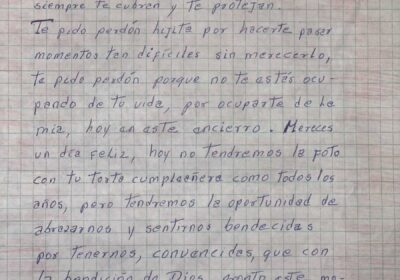 siempre te cubran y te protejan.
Te pido perdón hijita por hacerte pasar
momentos tan difíciles sin merecerlo,
te pido perdón porque no te estés ocu-
pando de tu vida, por ocuparte de la
mía, hoy en este encierro. Mereces
un día feliz, hoy no tendremos la foto
con tu torta cumpleañera como todos los
años, pero tendremos la oportunidad de
abrazarnos y sentirnos bendecidas
por tenernos, convencidas, que con
la bendición de Dios, pronto este mo-